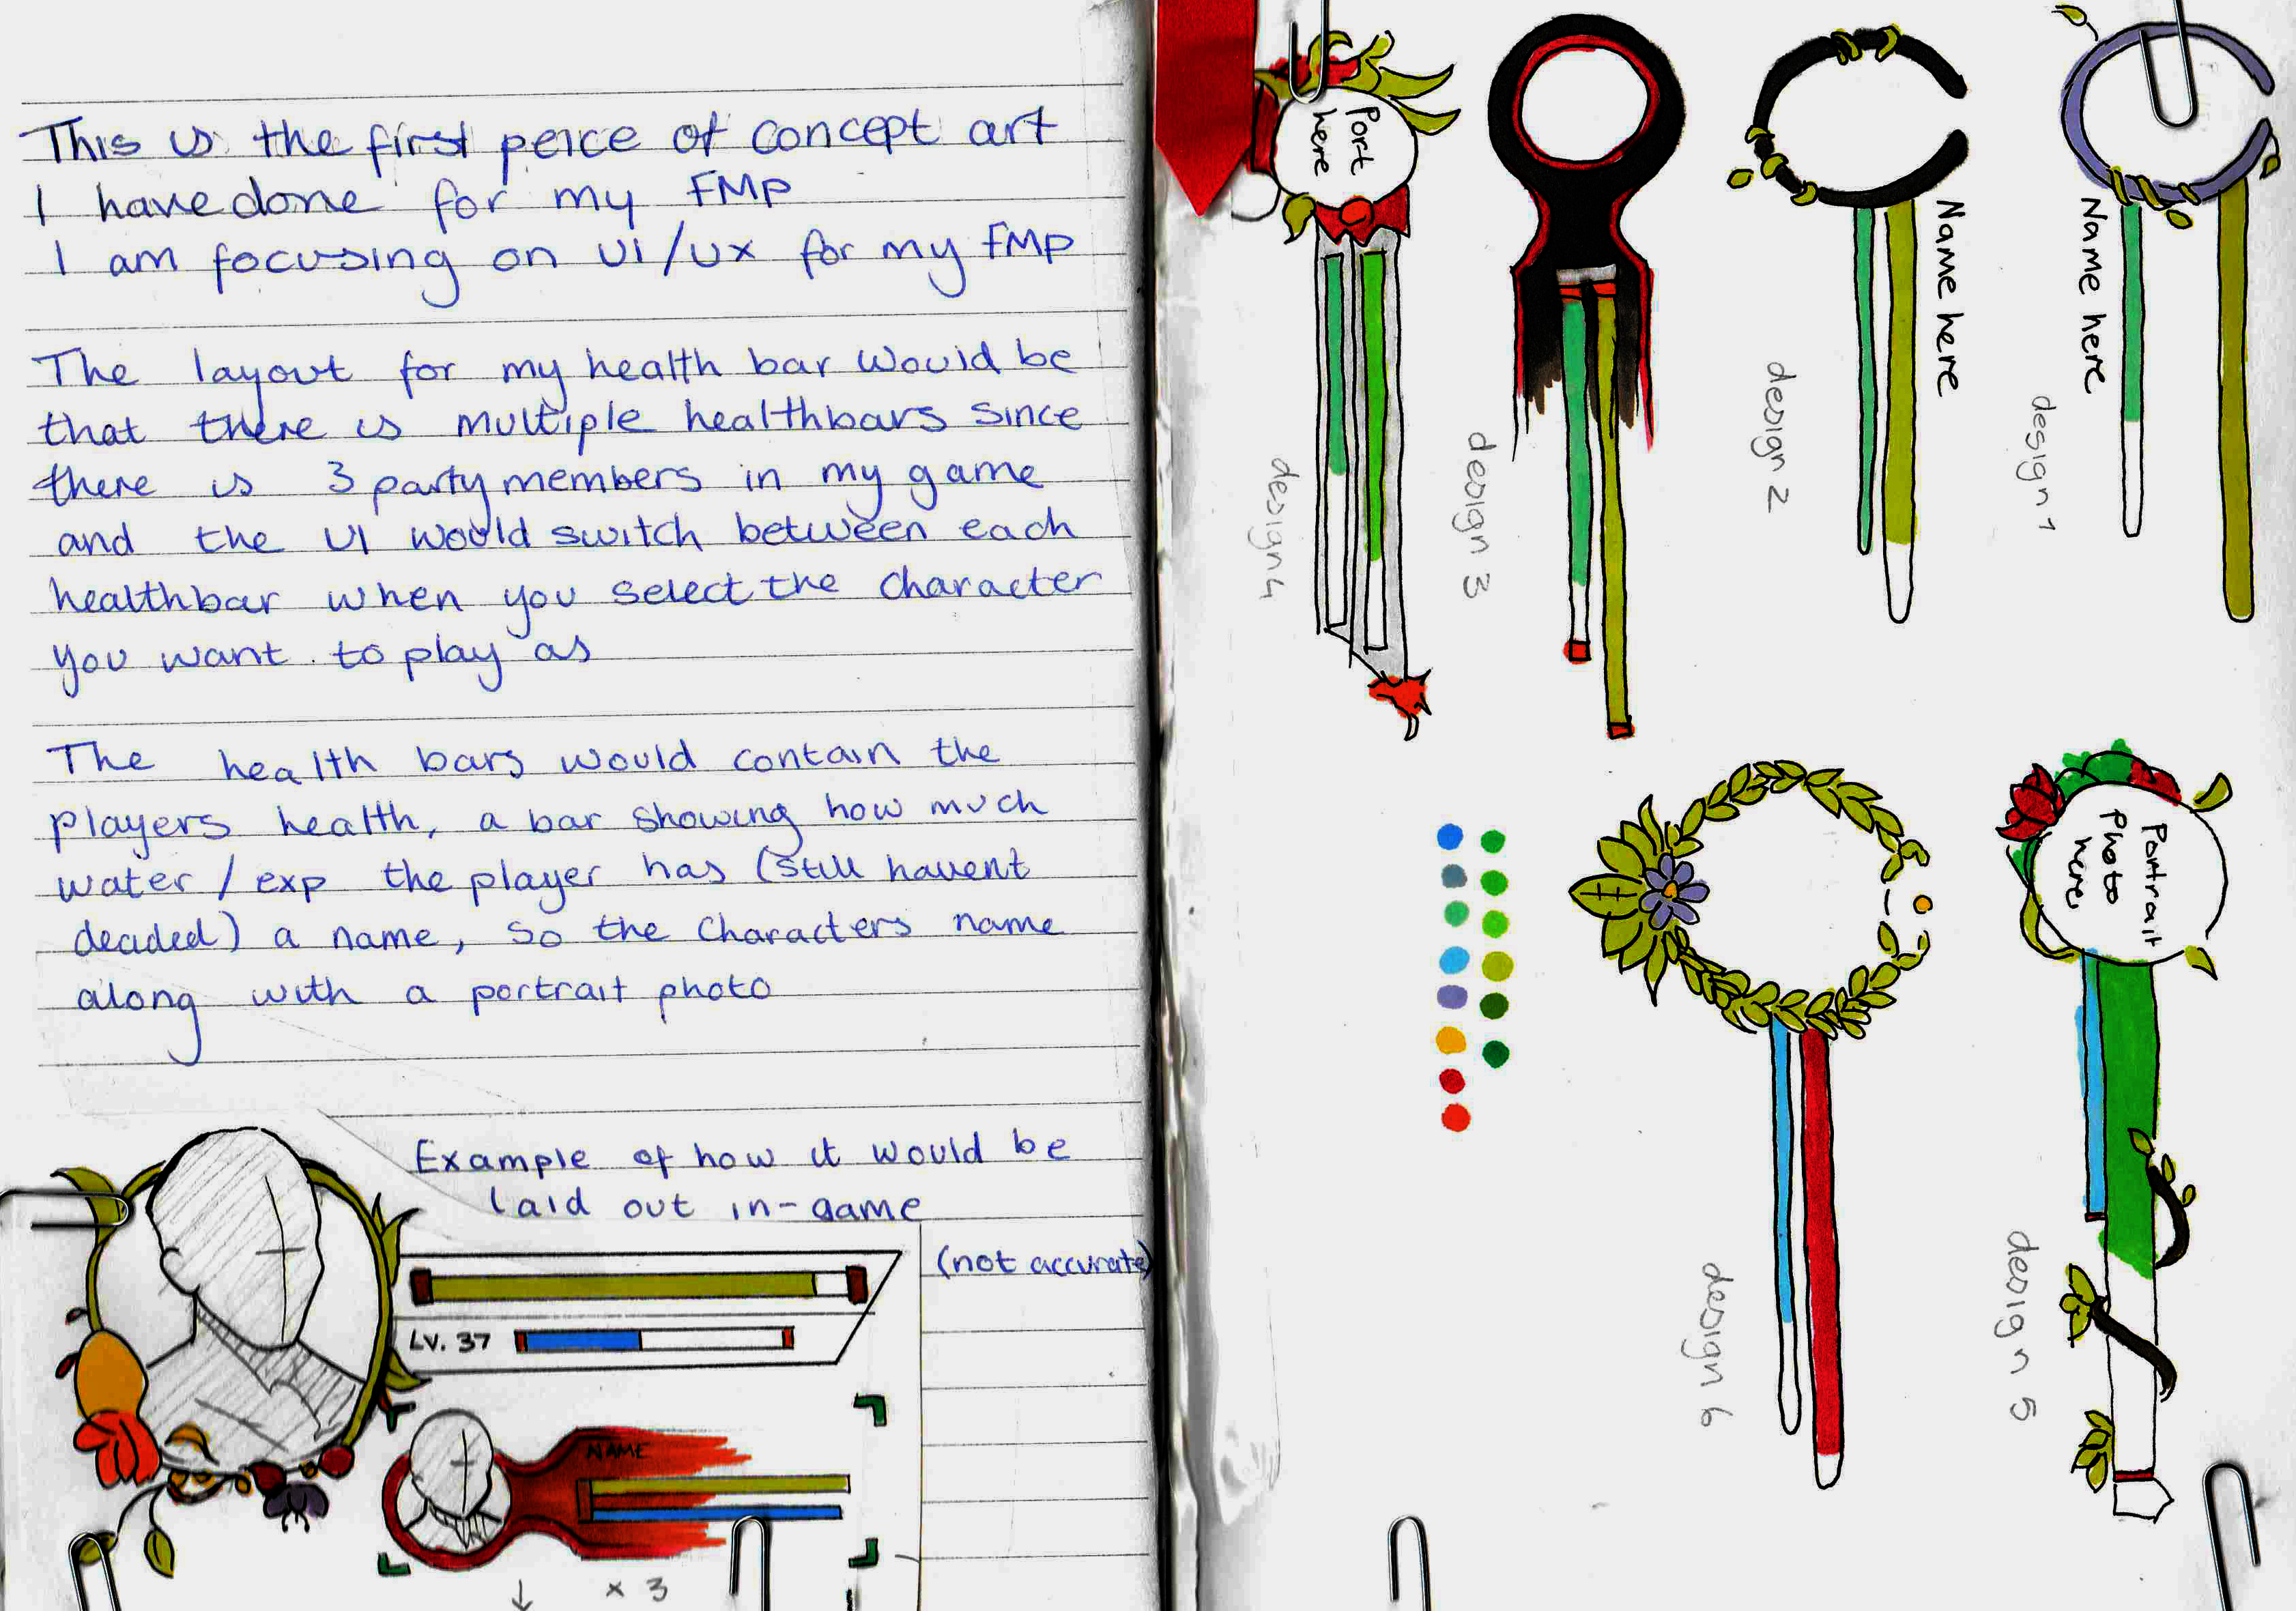 This is the first peice of concept art
I have done for my FMP
I am focusing on UI/UX for my FMP
The layout for my health bar would be
that there is multiple healthbars since
there is 3 party members in my game
and the UI would switch between each
healthbar when you select the character
you want to play as
The health bars would contain the
players health, a bar showing how much
water / exp the player has (still havent
decided) a name, so the characters name
along with a portrait photo
Example of how it would be
laid out in-game
(not accurate)
Lv. 37
NAME
x 3
Port
here
design 4
design 3
Name here
design 2
Name here
design 1
design 6
Portrait
Photo
here
design 5